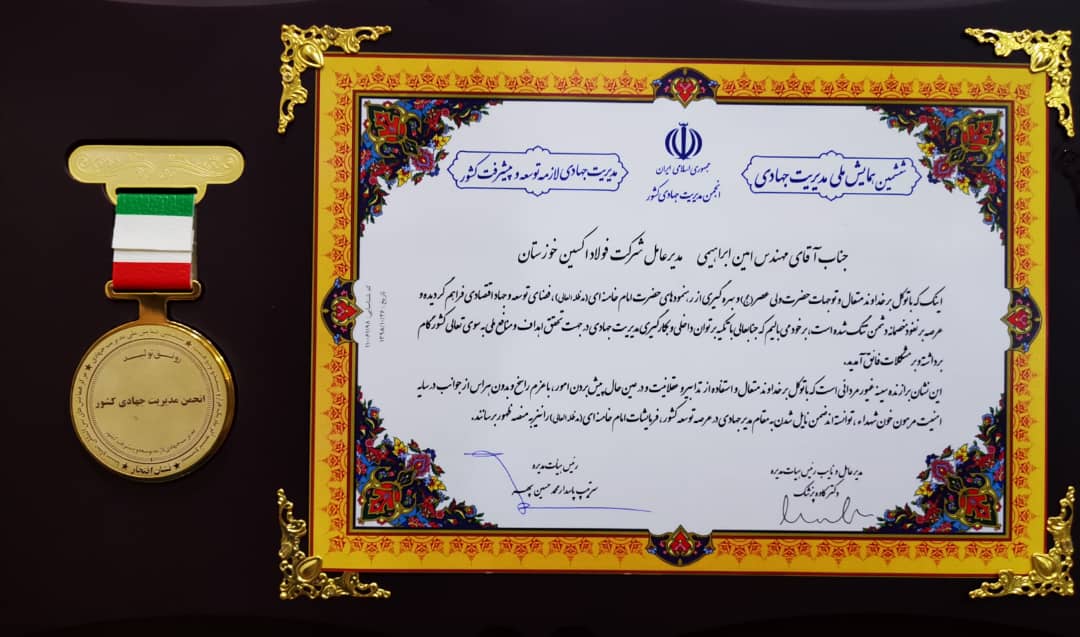 ششمین همایش ملی مدیریت جهادی
جمهوری اسلامی ایران
انجمن مدیریت جهادی کشور
مدیریت جهادی لازمه توسعه و پیشرفت کشور
جناب آقای مهندس امین ابراهیمی مدیرعامل شرکت فولاد اکسین خوزستان
اینک که با توکل بر خداوند متعال و توجهات حضرت ولی عصر(عج) و بهره گیری از رهنمودهای حضرت امام خامنه ای (مدظله العالی)، فضای توسعه و جهاد اقتصادی فراهم گردیده و
عرصه بر نفوذ خصمانه دشمن تنگ شده است، بر خود می بالیم که جنابعالی با تکیه بر توان داخلی و بکارگیری مدیریت جهادی در جهت تحقق اهداف و منافع ملی، به سوی تعالی کشور گام
برداشته و بر مشکلات فائق آمدید.
این نشان برازنده سینه غیور مردانی است که با توکل بر خداوند متعال و استفاده از تدابیر و عقلانیت و در عین حال پیش بردن امور، با عزم راسخ و بدون هراس از جوانب در سایه
امنیت مرهون خون شهداء، توانسته اند ضمن نایل شدن به مقام مدیر جهادی در عرصه توسعه کشور، فرمایشات امام خامنه ای (مدظله العالی) را نیز به منصه ظهور برسانند.
مدیرعامل و نایب رئیس هیات مدیره
دکتر کاوه پزشک
رئیس هیات مدیره
سرتیپ پاسدار محمد حسین
کد شناسایی:
تاریخ:
رونق تولید
انجمن مدیریت جهادی کشور
نشان افتخار